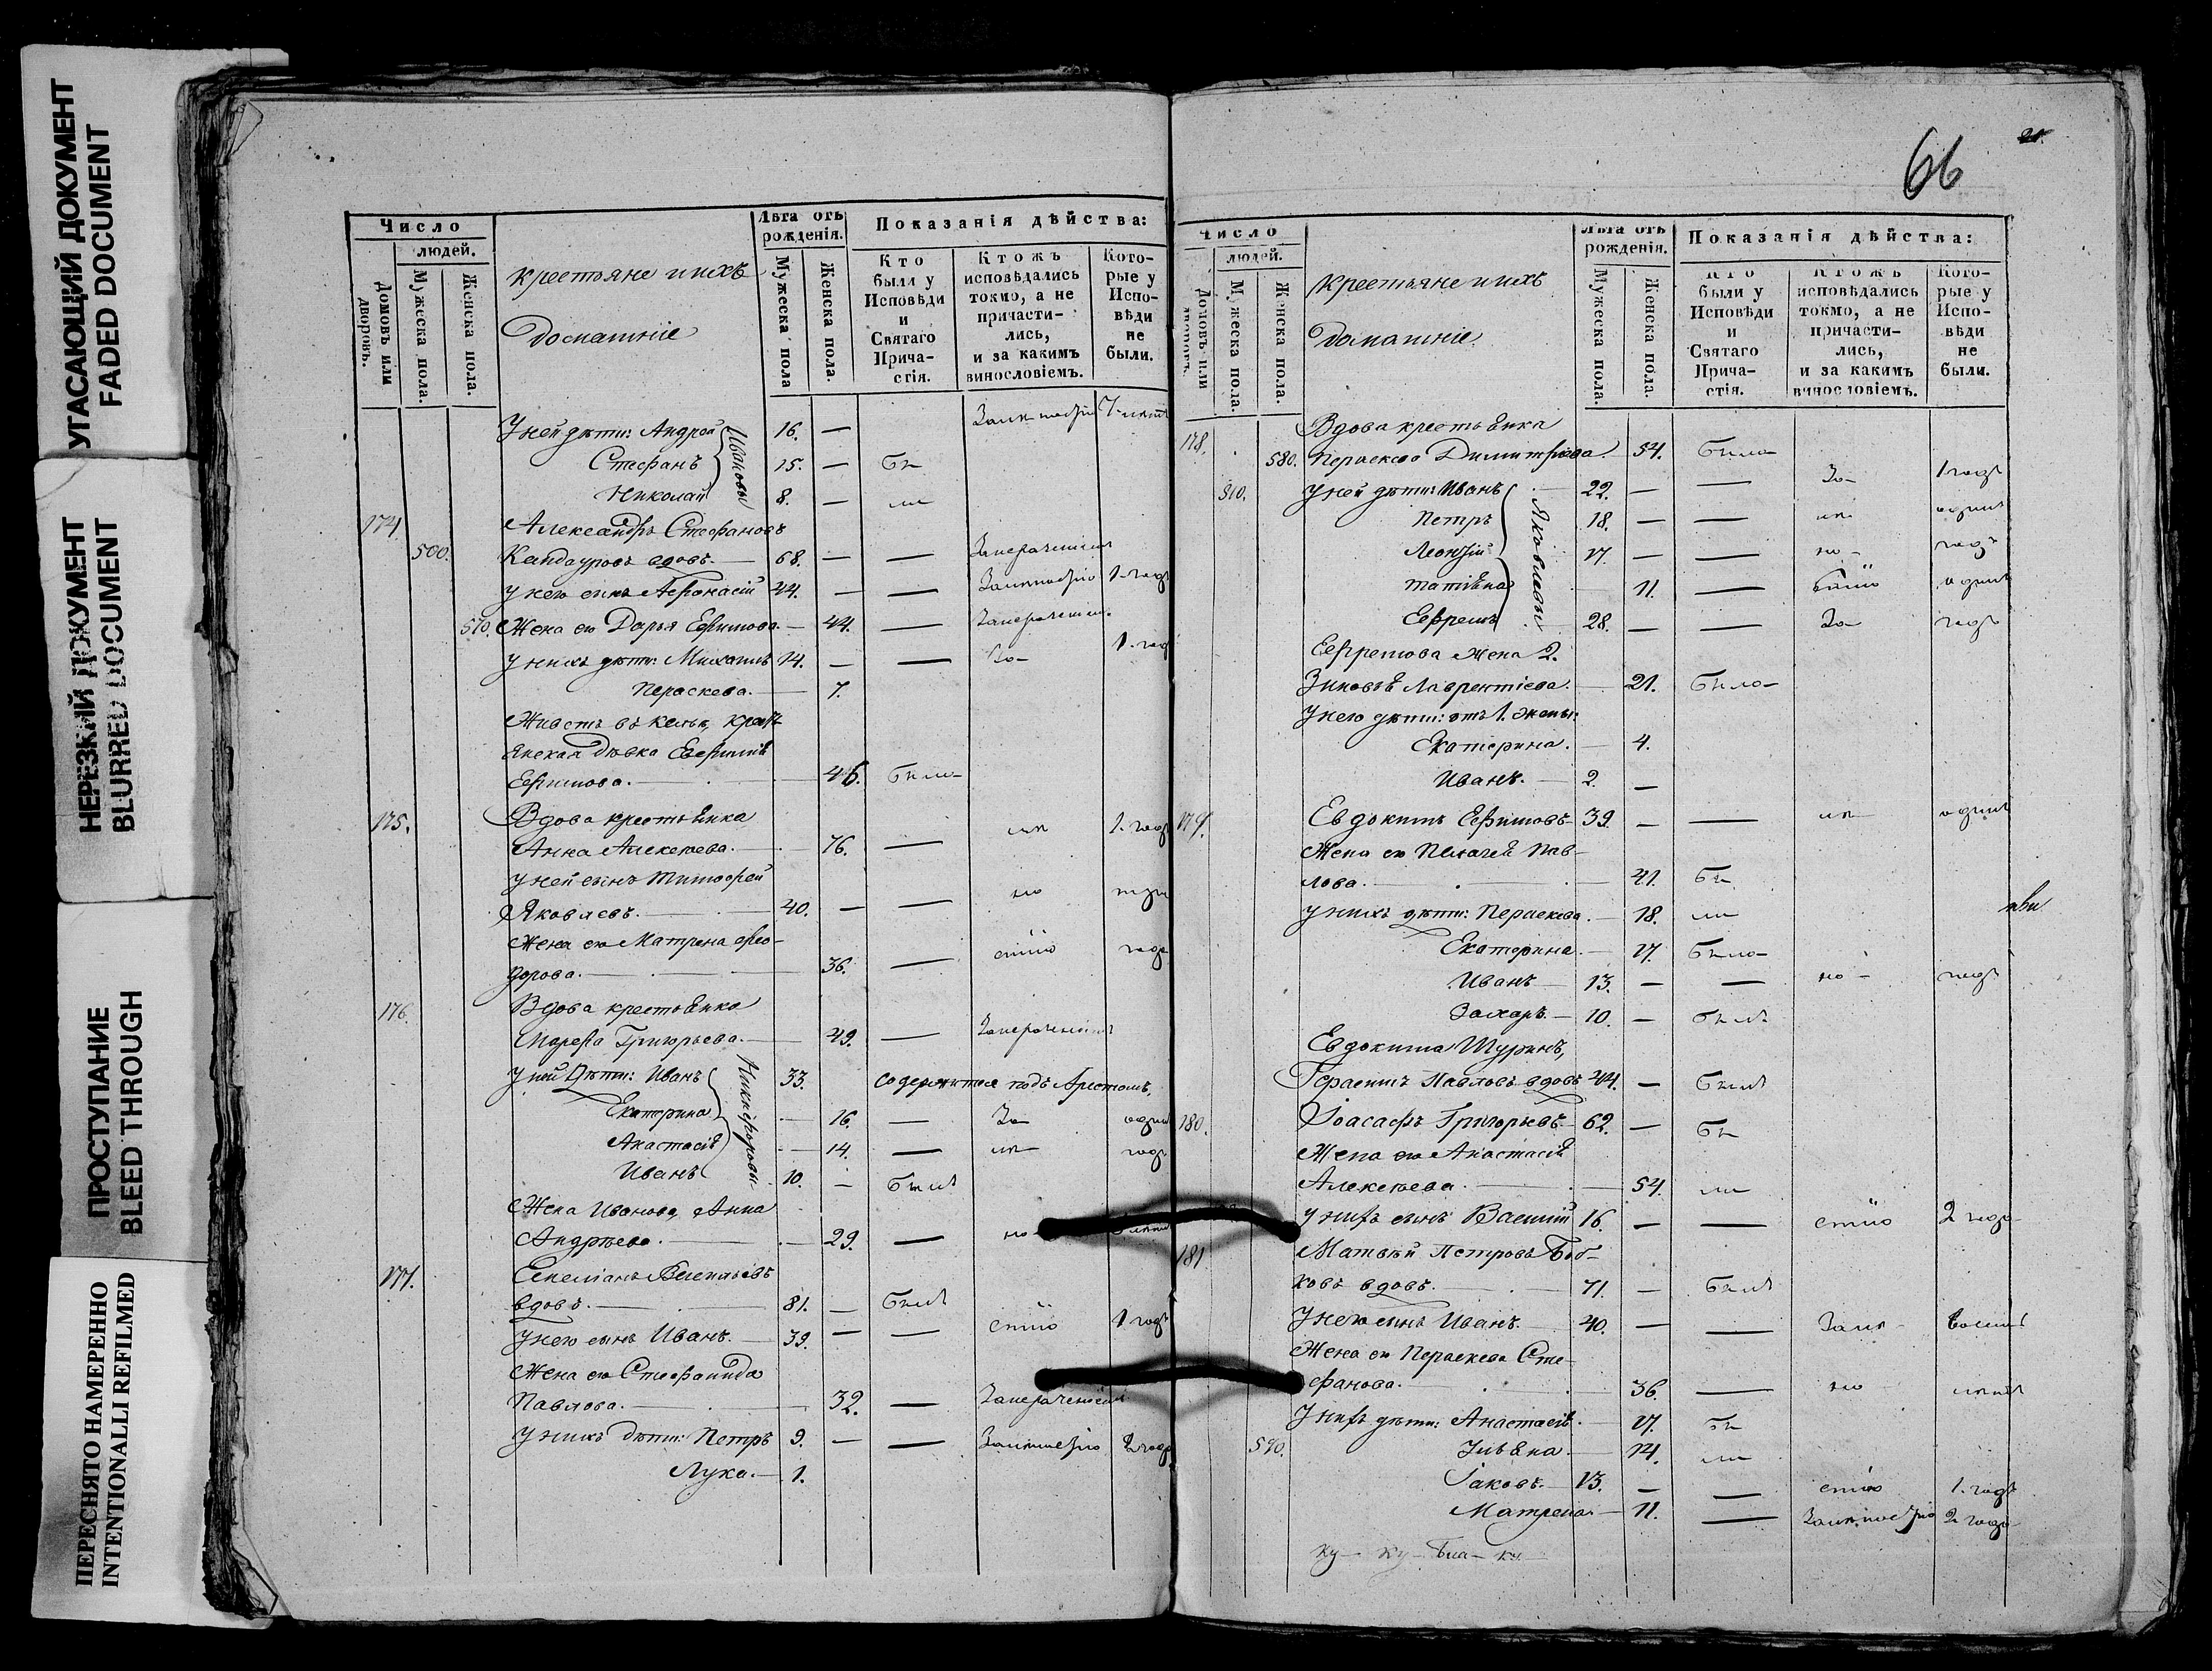 УГАСАЮЩИЙ ДОКУМЕНТ
FADED DOCUMENT
НЕРЕЗКИЙ ДОКУМЕНТ
BLURRED DOCUMENT
ПРОСТУПАНИЕ
BLEED THROUGH
ПЕРЕСНЯТО НАМЕРЕННО
INTENTIONALLI REFILMED
Число
людей.
Домовъ или дворовъ.
Мужеска пола.
Женска пола.
крестьяне и ихъ
домашніе
Лѣта отъ рожденія.
Мужеска пола
Женска пола.
Показанія дѣйства:
Кто были у Исповѣди и Святаго Причастія.
Ктожъ исповѣдались токмо, а не причастились, и за какимъ винословіемъ.
Которые у Исповѣди не были.
У ней дѣти: Андрей 16. —
Стефанъ 15. — Бы
Николай 8. — ли
Ивановы
174. Александръ Стефановъ
500. Кандауровъ вдовъ. 68. — —
у него сынъ Афонасій 44. — — 1. годъ
570. Жена его Дарья Ефимова. — 44. —
у нихъ дѣти: Михаилъ 14. — — 1. годъ
Пераскева. — 7.
Живетъ въ кельѣ, кресть-
янская дѣвка Евфимія
Ефимова. — 46. Была
175. Вдова крестьянка
Анна Алексѣева. — 76. — 1. годъ
у ней сынъ Тимофей
Яковлевъ. 40. — — три
Жена его Матрена Фео-
дорова. — 36. — стію года
176. Вдова крестьянка
Марфа Григорьева. — 49. —
у ней дѣти: Иванъ 33. содержится подъ Арестомъ.
Екатерина — 16. — За одинъ
Анастасія — 14. — годъ
Иванъ 10. — Былъ
Никифоровы
Жена Иванова, Анна
Андрѣева. — 29. —
177. Емеліанъ Васильевъ
вдовъ. 81. — Былъ
у него сынъ Иванъ. 39. — — стію 1 годъ
Жена его Стефанида
Павлова. — 32. —
у нихъ дѣти: Петръ 9. — — 2 года
Лука. 1.
66
21.
Число
людей.
Домовъ или дворовъ.
Мужеска пола.
Женска пола.
крестьяне и ихъ
домашніе
Лѣта отъ рожденія.
Мужеска пола.
Женска пола.
Показанія дѣйства:
Кто были у Исповѣди и Святаго Причастія.
Ктожъ исповѣдались токмо, а не причастились, и за какимъ винословіемъ.
Которые у Исповѣди не были.
178. Вдова крестьянка
580. Пераскева Димитріева — 54. Была
510. у ней дѣти: Иванъ 22. — — За 1 годъ
Петръ 18. — — одинъ
Леонтій 17. — — годъ
Татіяна 11. — одинъ
Ефремъ 28. — — За годъ
Яковлевы
Ефремова жена 2.
Зиновія Лаврентіева. — 21. Была
у него дѣти: отъ 1. жены:
Екатерина. — 4.
Иванъ. 2. —
179. Евдокимъ Ефимовъ 39. — — одинъ
Жена его Пелагея Пав-
лова. — 41. Бы
у нихъ дѣти: Пераскева. — 18. ли
Екатерина. — 17. Была
Иванъ 13. — — годъ
Захаръ. 10. — Былъ
Евдокима Шуринъ,
Герасимъ Павловъ вдовъ 44. — Былъ
180. Іоасафъ Григорьевъ 62. — Бы
Жена его Анастасія
Алексѣева. — 54. ли
у нихъ сынъ Василій 16. — — стію 2 года
181. Матвѣй Петровъ Боб-
ковъ вдовъ. 71. — Былъ
У него сынъ Иванъ. 40. — — восемь
Жена его Пераскева Сте-
фанова. — 36. — лѣтъ
У нихъ дѣти: Анастасія. — 17. Бы
590. Ульяна. — 14. ли
Іаковъ. 13. — — стію 1. годъ
Матрена. — 11. — 2 года